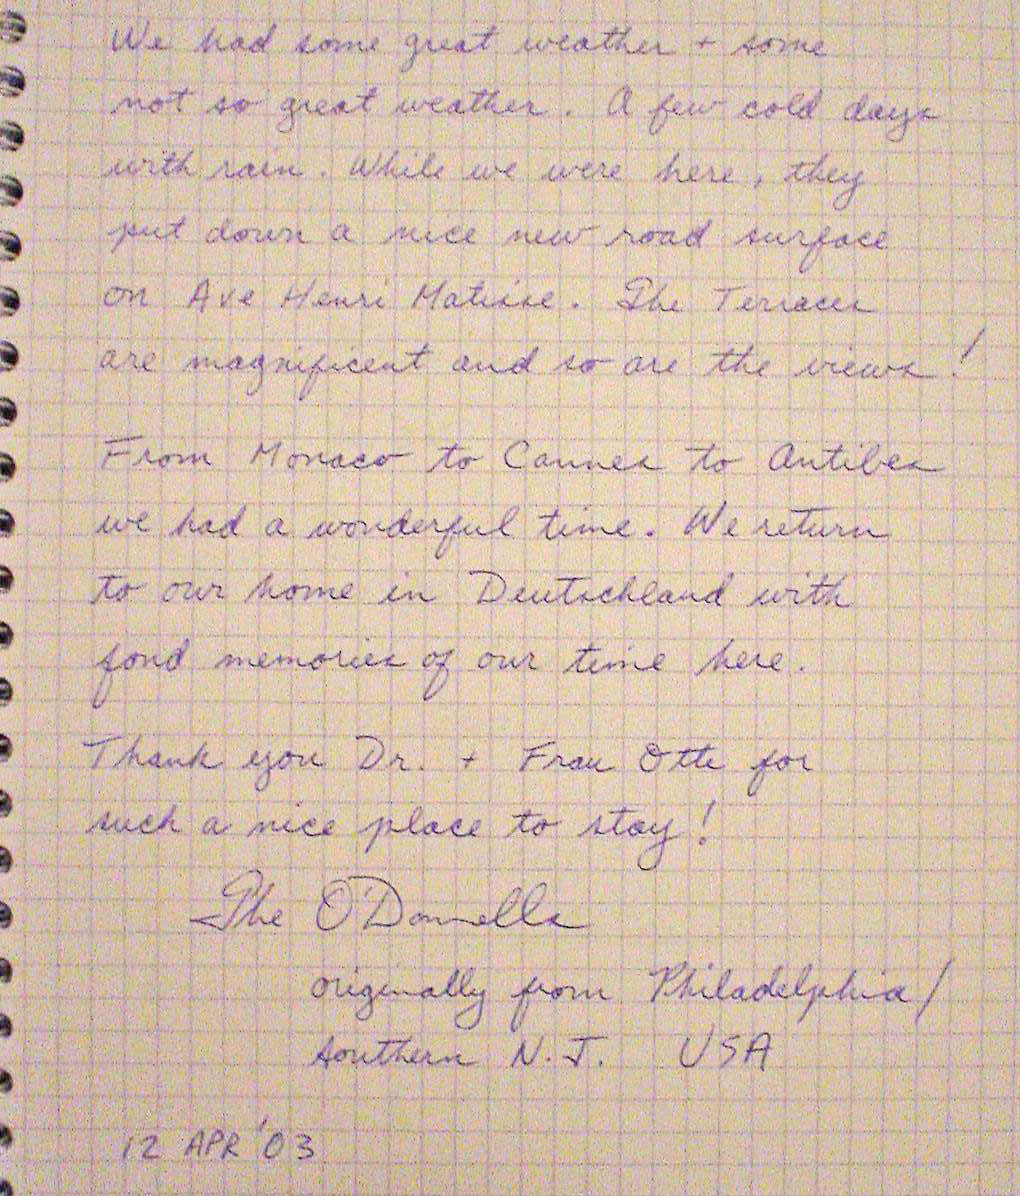 We had some great weather + some
not so great weather. A few cold days
with rain. While we were here, they
put down a nice new road surface
on Ave Henri Matisse. The Terraces
are magnificent and so are the views!
From Monaco to Cannes to Antibes
we had a wonderful time. We return
to our home in Deutschland with
fond memories of our time here.
Thank you Dr. + Frau Otte for
such a nice place to stay!
The O'Donnells
originally from Philadelphia/
southern N.J. USA
12 APR '03